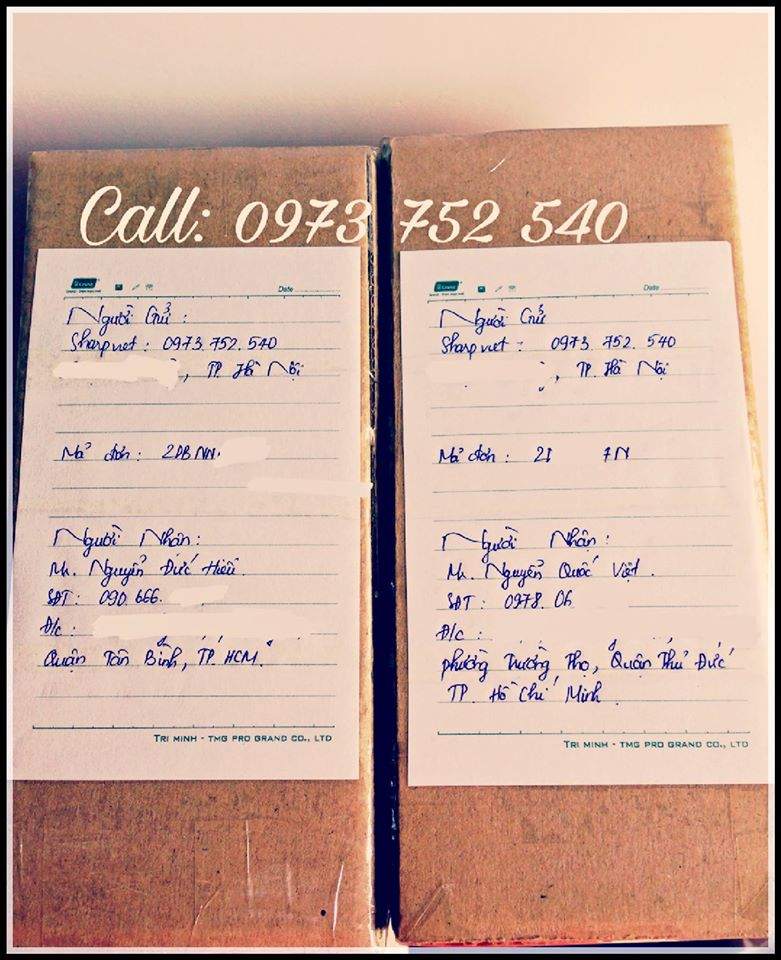 Call: 0973 752 540
Date
Người Gửi :
Sharpviet : 0973.752.540
, TP. Hà Nội
Mã đơn : 2DBNN.
Người Nhận :
Mr. Nguyễn Đức Hiếu
SĐT : 090.666.
Đ/c :
Quận Tân Bình, TP. HCM.
TRI MINH - TMG PRO GRAND CO., LTD
Date
Người Gửi
Sharpviet : 0973. 752. 540
, TP. Hà Nội
Mã đơn : 2I 7N
Người Nhận :
Mr. Nguyễn Quốc Việt.
SĐT : 0978. 06
Đ/c :
phường Trường Thọ, Quận Thủ Đức
TP. Hồ Chí Minh
TRI MINH - TMG PRO GRAND CO., LTD